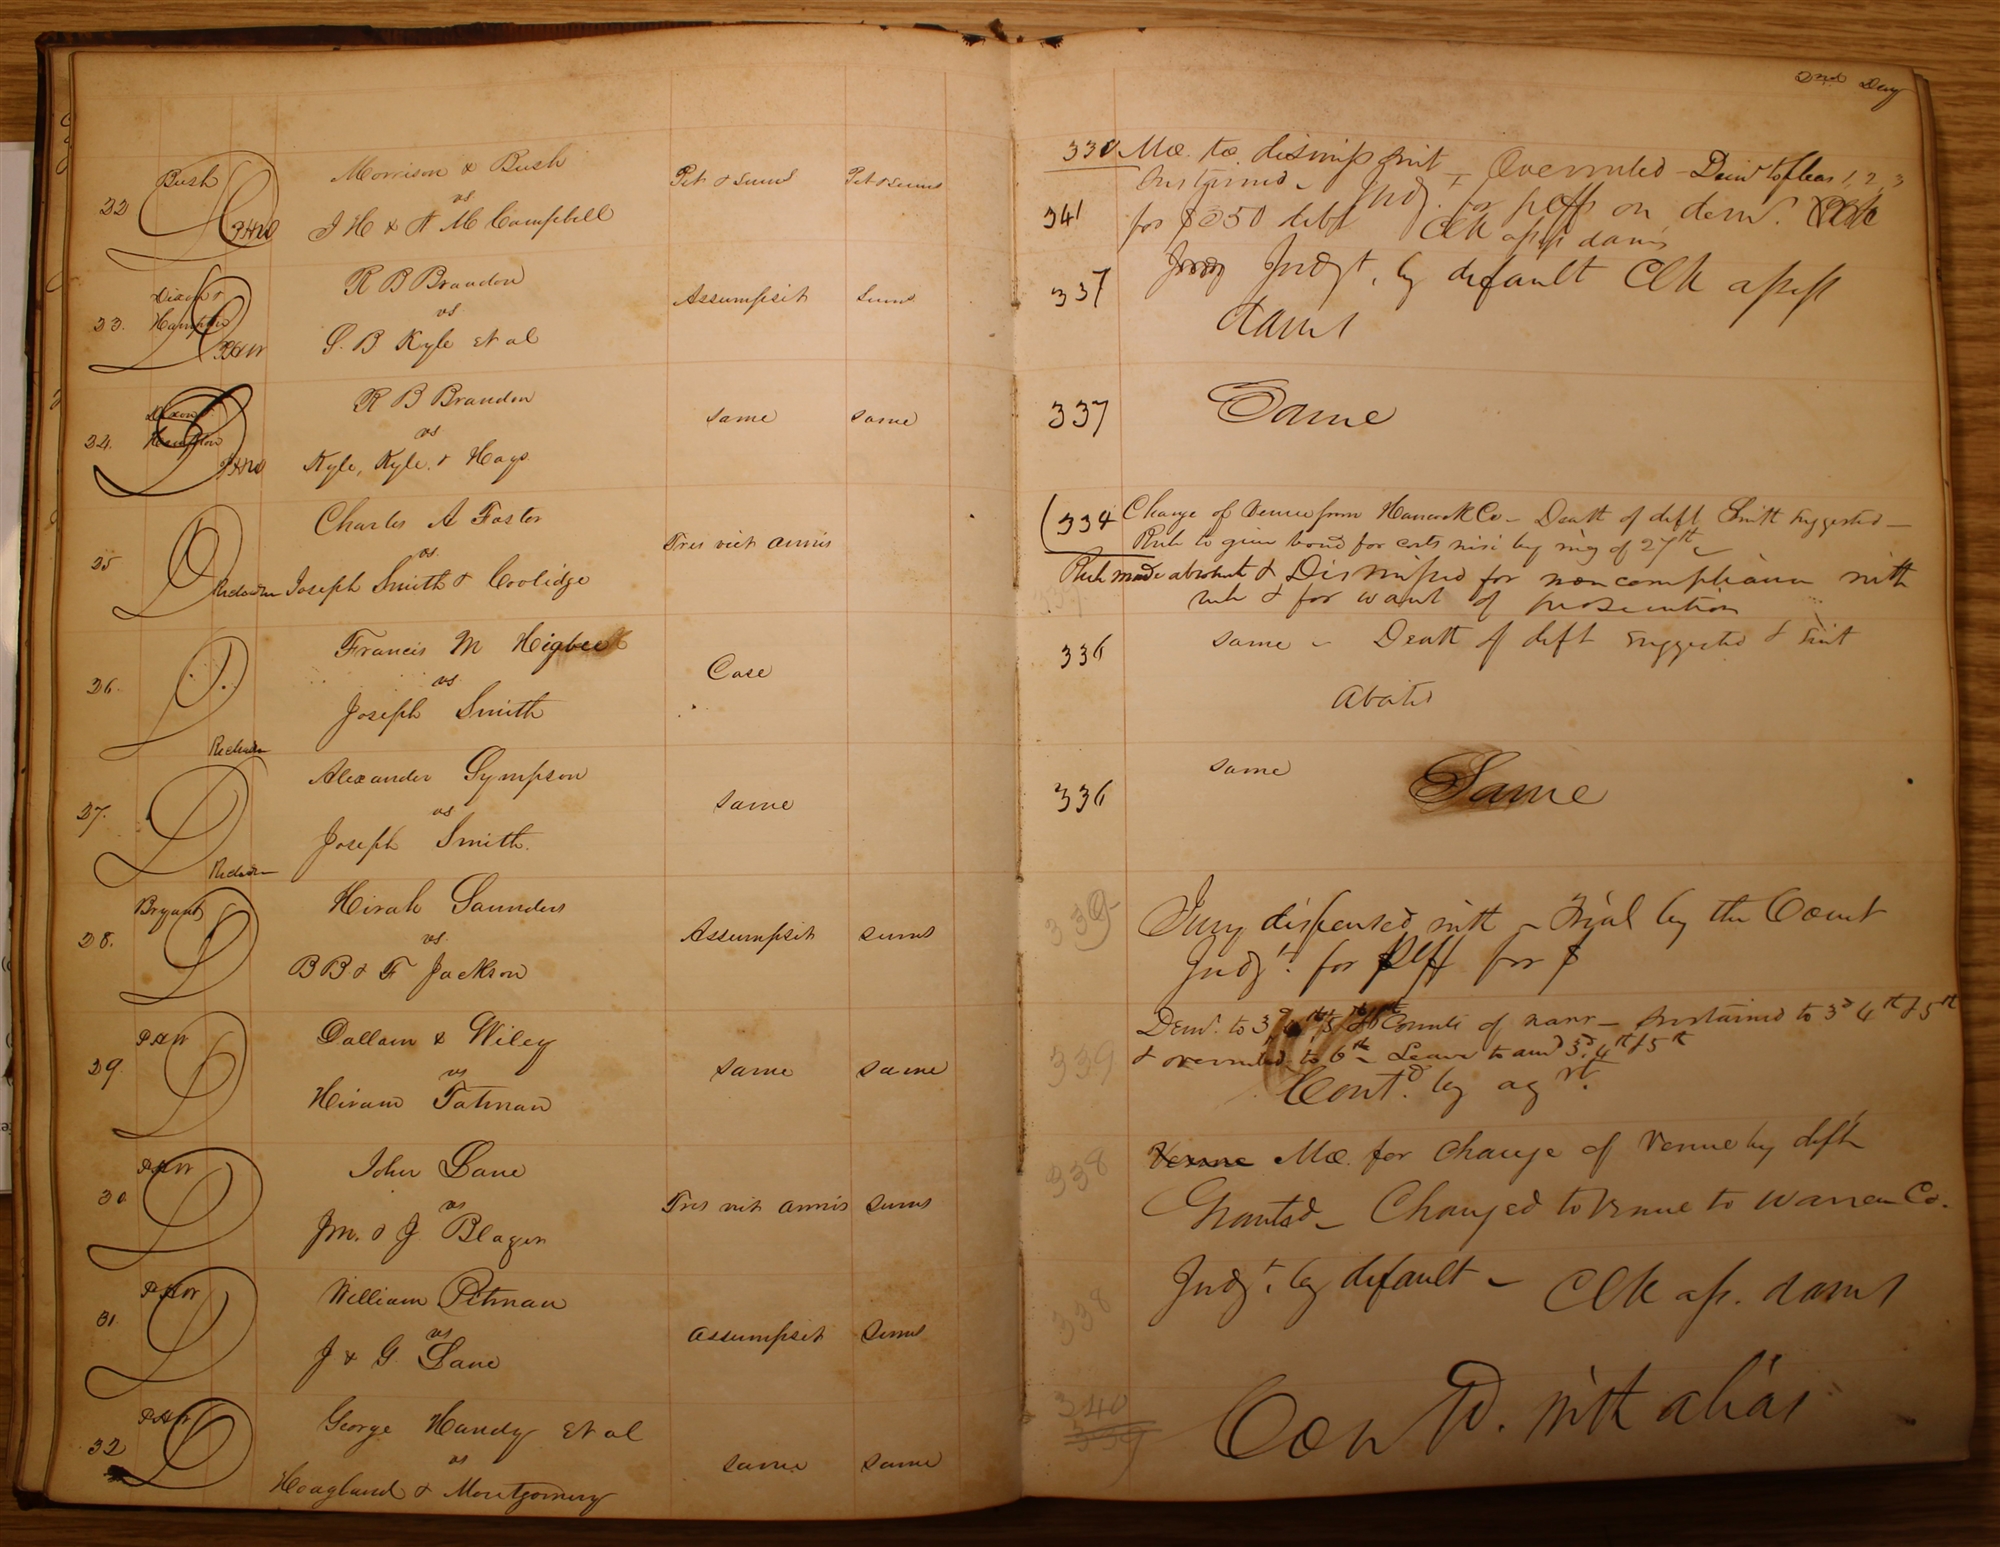 2nd Day
22
Bush
P.H.W
Morrison & Bush
vs
J H & A M Campbell
Pet & Sums
Pet & Sums
330 Mo. to dismiss suit – Overruled – Demr to pleas 1, 2, 3
Sustained – Judgt for plff on demr.
341 for $250 debt Clk assess dams
23.
Dixon &
Hampton
R B Brandon
vs
S. B Kyle et al
Assumpsit
Sums
337 Judgt. by default Clk assess
dams
24.
Dixon &
Hampton
PHW
R B Brandon
vs
Kyle, Kyle & Hays
same
same
337 Same
25
Richardson
Charles A Foster
vs
Joseph Smith & Coolidge
Tres vi et armis
334 Change of Venue from Hancock Co – Death of deft Smith suggested –
Rule to give bond for costs nisi by mg of 27th –
Rule made absolute & Dismissed for noncompliance with
rule & for want of prosecution
26.
Richardson
Francis M Higbee
vs
Joseph Smith
Case
336 same – Death of deft suggested & suit
abated
27.
Richardson
Alexander Sympson
vs
Joseph Smith.
same
336 same Same
28.
Bryant
Hirah Saunders
vs.
B B & F Jackson
Assumpsit
sums
339 Jury dispensed with – Trial by the Court
Judgt. for plff for $
29
PHW
Dallam & Wiley
vs
Hiram Tatman
same
same
Demr. to 3d 4th 5th & 6th Counts of narr – sustained to 3d 4th & 5th
339 & overruled to 6th – Leave to amd 3d, 4th & 5th
Contd. by agrt.
30
PHW
John Lane
vs
Jm. & J Blazer
Tres vi et armis
sums
338 Venue Mo. for change of venue by defts
Granted – Changed to Venue to Warren Co.
31
PHW
William Pitman
vs
J & G. Lane
Assumpsit
Sums
338 Judgt. by default – Clk ass. dams
32
PHW
George Handy et al
vs
Hoagland & Montgomery
same
same
340
339
Contd. with alias